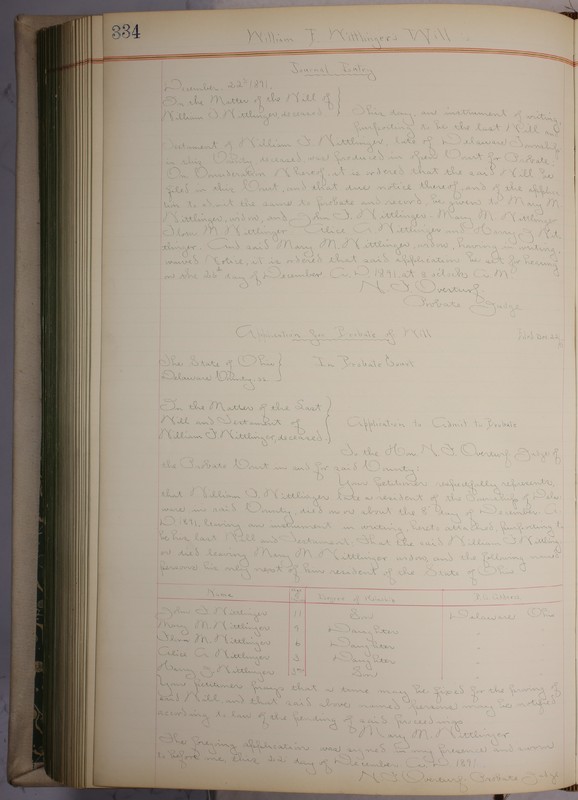 334
William F. Nittlinger's Will
Journal Entry
December 22d 1891.
In the Matter of the Will of
William F. Nittlinger, deceased
This day, an instrument of writing,
purporting to be the last Will and
Testament of William F. Nittlinger, late of Delaware Township
in this County, deceased was produced in open Court for Probate.
On Consideration Whereof, it is ordered that the said Will be
filed in this Court, and that due notice thereof, and of the applica-
tion to admit the same to probate and record, be given to Mary M.
Nittlinger, widow, and, John F. Nittlinger, Mary M. Nittlinger
M. Nittlinger Alice A. Nittlinger and Harry J. Nit-
tlinger. And said Mary M. Nittlinger, widow, having in writing,
waived Notice, it is ordered that said application be set for hearing
on the day of December A.D. 1891, at o'clock A.M.
N. F. Overturf
Probate Judge
Application for Probate of Will
The State of Ohio
Delaware County, ss.
In Probate Court
In the Matter of the Last
Will and Testament of
William F. Nittlinger, deceased
Application to Admit to Probate
To the Hon. N. F. Overturf, Judge of
the Probate Court in and for said County:
Your petitioner respectfully represents,
that William F. Nittlinger late a resident of the Township of Dela-
ware in said County, died on or about the 8 day of December A.
D. 1891, leaving an instrument in writing, hereto attached, purporting to
be his last Will and Testament. That the said William F. Nittling-
er died leaving Mary M. Nittlinger widow, and the following named
persons his only next of kin resident of the State of Ohio
Name Age Degree of Kinship P.O. Address
John F. Nittlinger 11 Son Delaware Ohio
Mary M. Nittlinger 9 Daughter "
M. Nittlinger 6 Daughter "
Alice A. Nittlinger 3 Daughter "
Harry J. Nittlinger Son "
Your petitioner prays that a time may be fixed for the proving of
said Will and that said above named persons may be notified
according to law of the pending of said proceedings.
Mary M. Nittlinger
The foregoing application was signed in my presence and sworn
to before me this 22d day of December A.D. 1891.
N. F. Overturf, Probate Judge